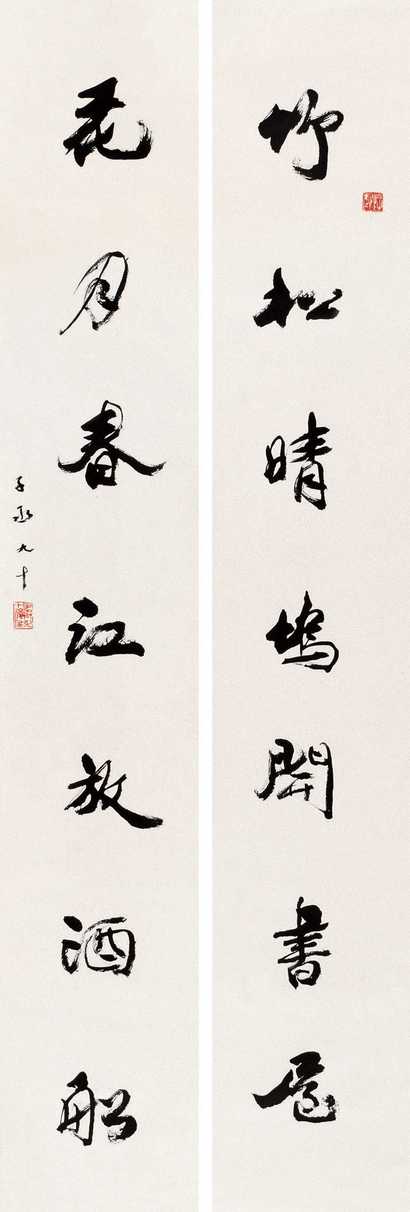 竹松晴塢開書屋
花月春江放酒船
子丞九十